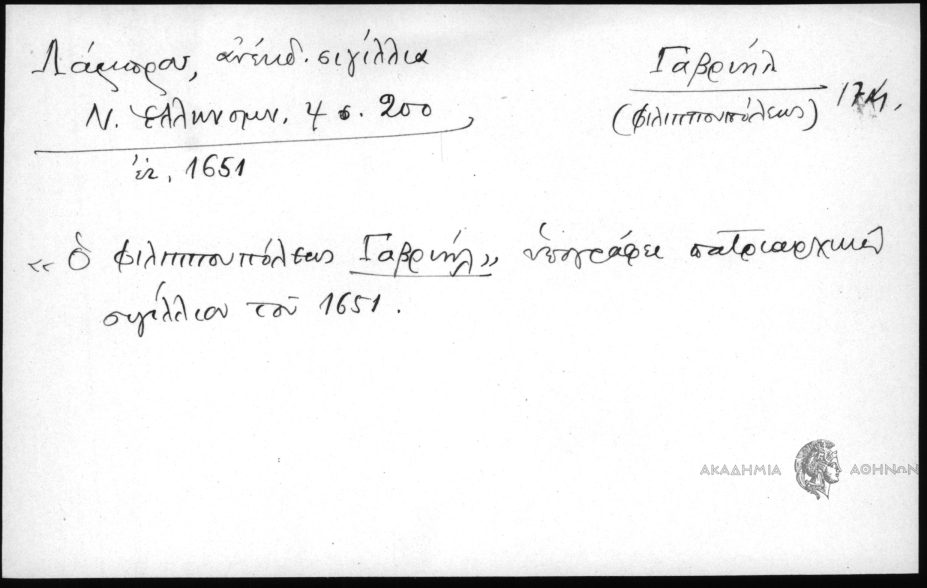 Λάμπρου, ἀνέκδ. σιγίλλια
Ν. Ἑλληνομν. 4 σ. 200
ἔτ. 1651
Γαβριήλ
(Φιλιππουπόλεως)
«Ὁ Φιλιππουπόλεως Γαβριήλ» ὑπογράφει πατριαρχικὸν
σιγίλλιον τοῦ 1651.
ΑΚΑΔΗΜΙΑ ΑΘΗΝΩΝ